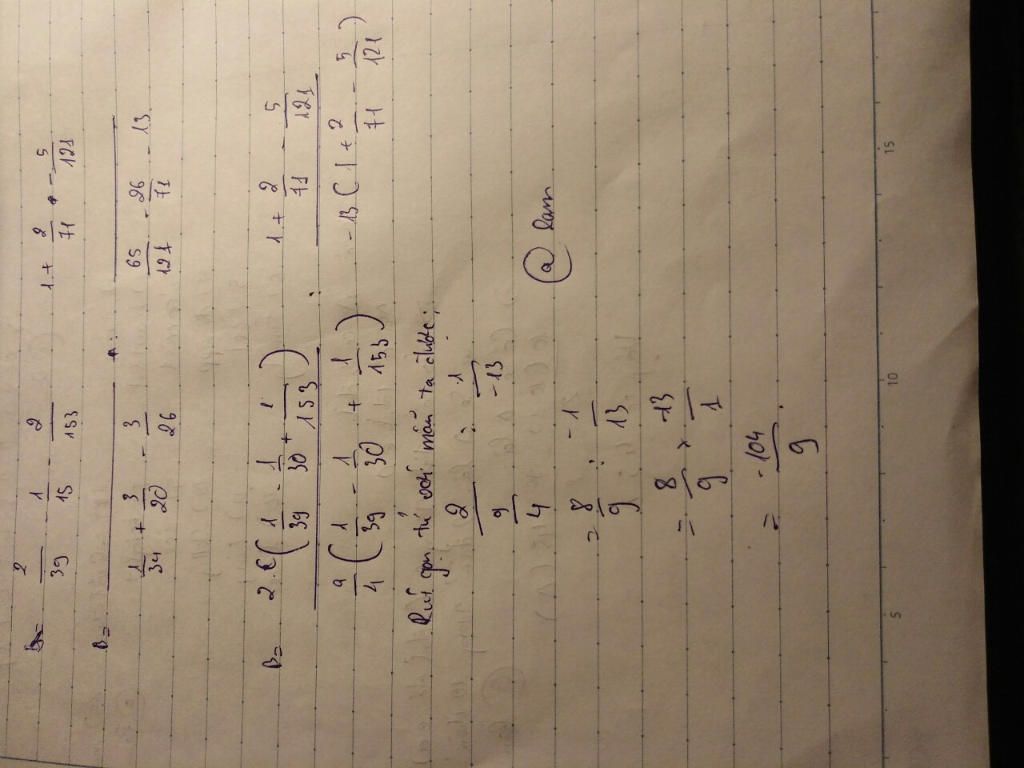 2/39 - 1/15 - 2/153 : 1 + 2/71 - 5/121
B = ———————— : ————————
1/34 + 3/20 - 3/26   65/121 - 26/71 - 13
B = 2·(1/39 - 1/30 + 1/153) / 9/4(1/39 - 1/30 + 1/153) : 1 + 2/71 - 5/121 / -13(1 + 2/71 - 5/121)
Rút gọn tử với mẫu ta được:
2 / 9/4 : 1/-13
= 8/9 : -1/13
= 8/9 × -13/1
= -104/9.
@ Lam
5
10
15